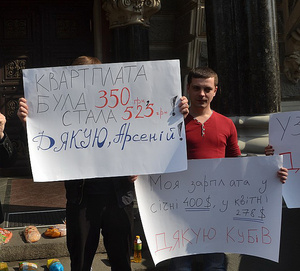 КВАРТПЛАТА
БУЛА 350 грн.
СТАЛА 525 грн!
ДЯКУЮ, Арсеній!
Моя зарплата у
січні 400$, у квітні
278$
ДЯКУЮ КУБІВ
У З